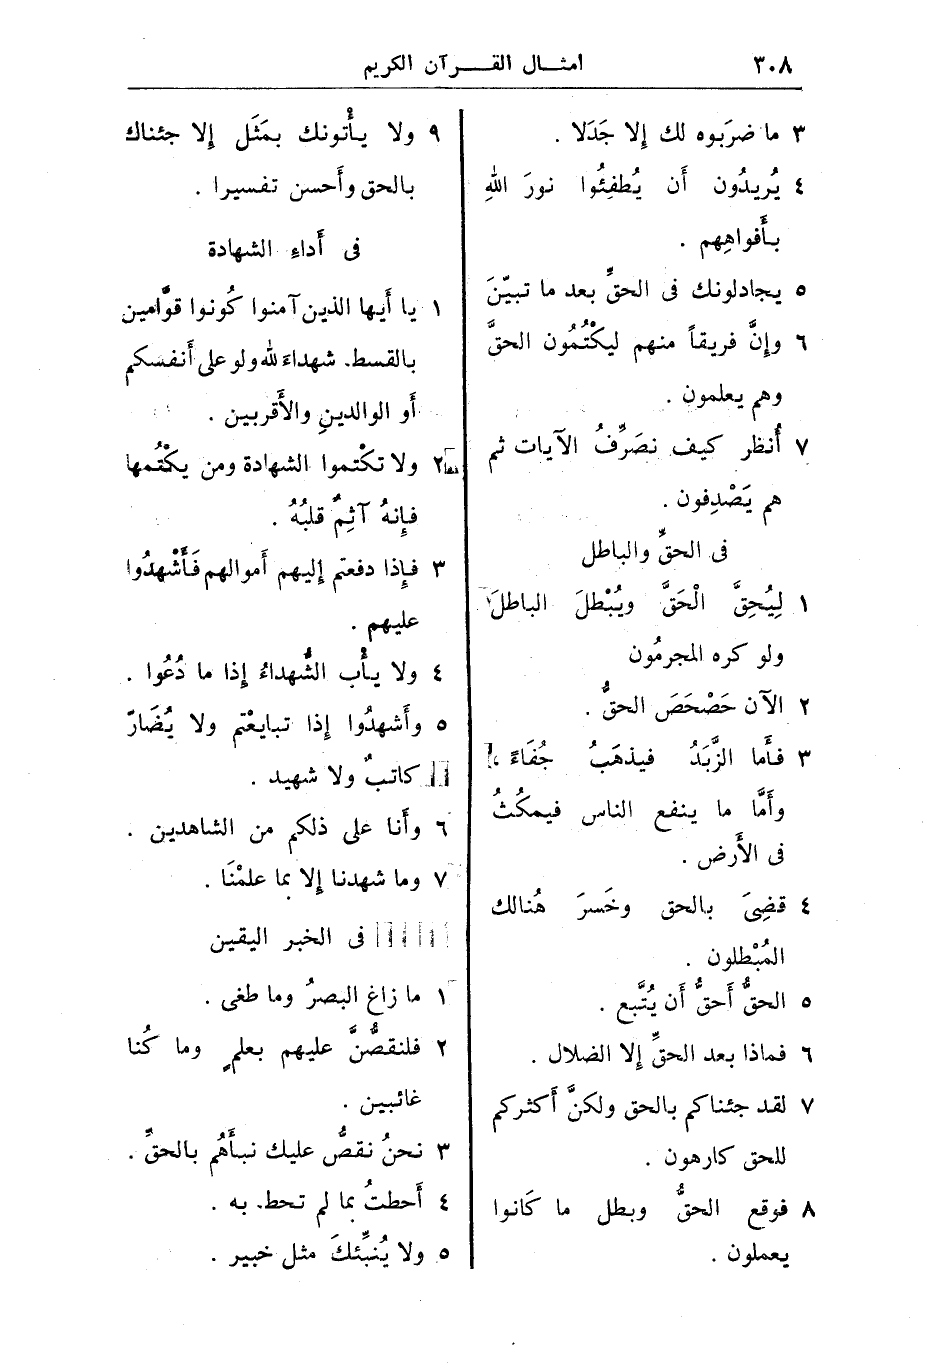 ٣٠٨
امثـال القـرآن الكريم
٣ ما ضرَبوه لك إلا جَدَلا .
٤ يُريدُون أن يُطفِئُوا نورَ اللهِ
بأَفواهِهم .
٥ يجادلونك فى الحقِّ بعد ما تبيّنَ
٦ وإنَّ فريقاً منهم ليكْتُمُون الحقَّ
وهم يعلمون .
٧ أُنظر كيف نصَرِّفُ الآيات ثم
هم يَصْدِفون .
فى الحقِّ والباطل
١ لِيُحِقَّ الْحَقَّ ويُبْطلَ الباطلَ
ولو كره المجرمُون
٢ الآن حَصْحَصَ الحقُّ .
٣ فأَما الزَّبَدُ فيذهَبُ جُفَاءً ،
وأَمَّا ما ينفع الناس فيمكُثُ
فى الأَرض .
٤ قضِىَ بالحق وخَسرَ هُنالك
المُبْطلون .
٥ الحقُّ أَحقُّ أَن يُتَّبع .
٦ فماذا بعد الحقِّ إلا الضلال .
٧ لقد جئناكم بالحق ولكنَّ أَكثركم
للحق كارهون .
٨ فوقع الحقُّ وبطل ما كَانوا
يعملون .
٩ ولا يأْتونك بمَثَل إلا جئناك
بالحق وأَحسن تفسيرا .
فى أَداءِ الشهادة
١ يا أَيها الذين آمنوا كُونوا قوَّامين
بالقسط. شهداءَ لله ولو على أَنفسكم
أَو الوالدينِ والأَقربين .
٢ ولا تكْتموا الشهادة ومن يكْتُمها
فإِنهُ آثِمٌ قلبُهُ .
٣ فإذا دفعتم إليهم أَموالهم فَأَشْهدُوا
عليهم .
٤ ولا يأْب الشُّهداءُ إذا ما دُعُوا .
٥ وأَشهدُوا إذا تبايعْتم ولا يُضَارّ
كاتبٌ ولا شهيد .
٦ وأَنا على ذلكم من الشاهدين .
٧ وما شهدنا إلا بما علمْنَا .
فى الخبر اليقين
١ ما زاغ البصرُ وما طغى .
٢ فلنقصُّنَّ عليهم بعلمٍ وما كُنا
غائبين .
٣ نحنُ نقصُّ عليك نبأَهُم بالحقِّ .
٤ أَحطتُ بما لم تحط. به .
٥ ولا يُنبِّئكَ مثل خبير .